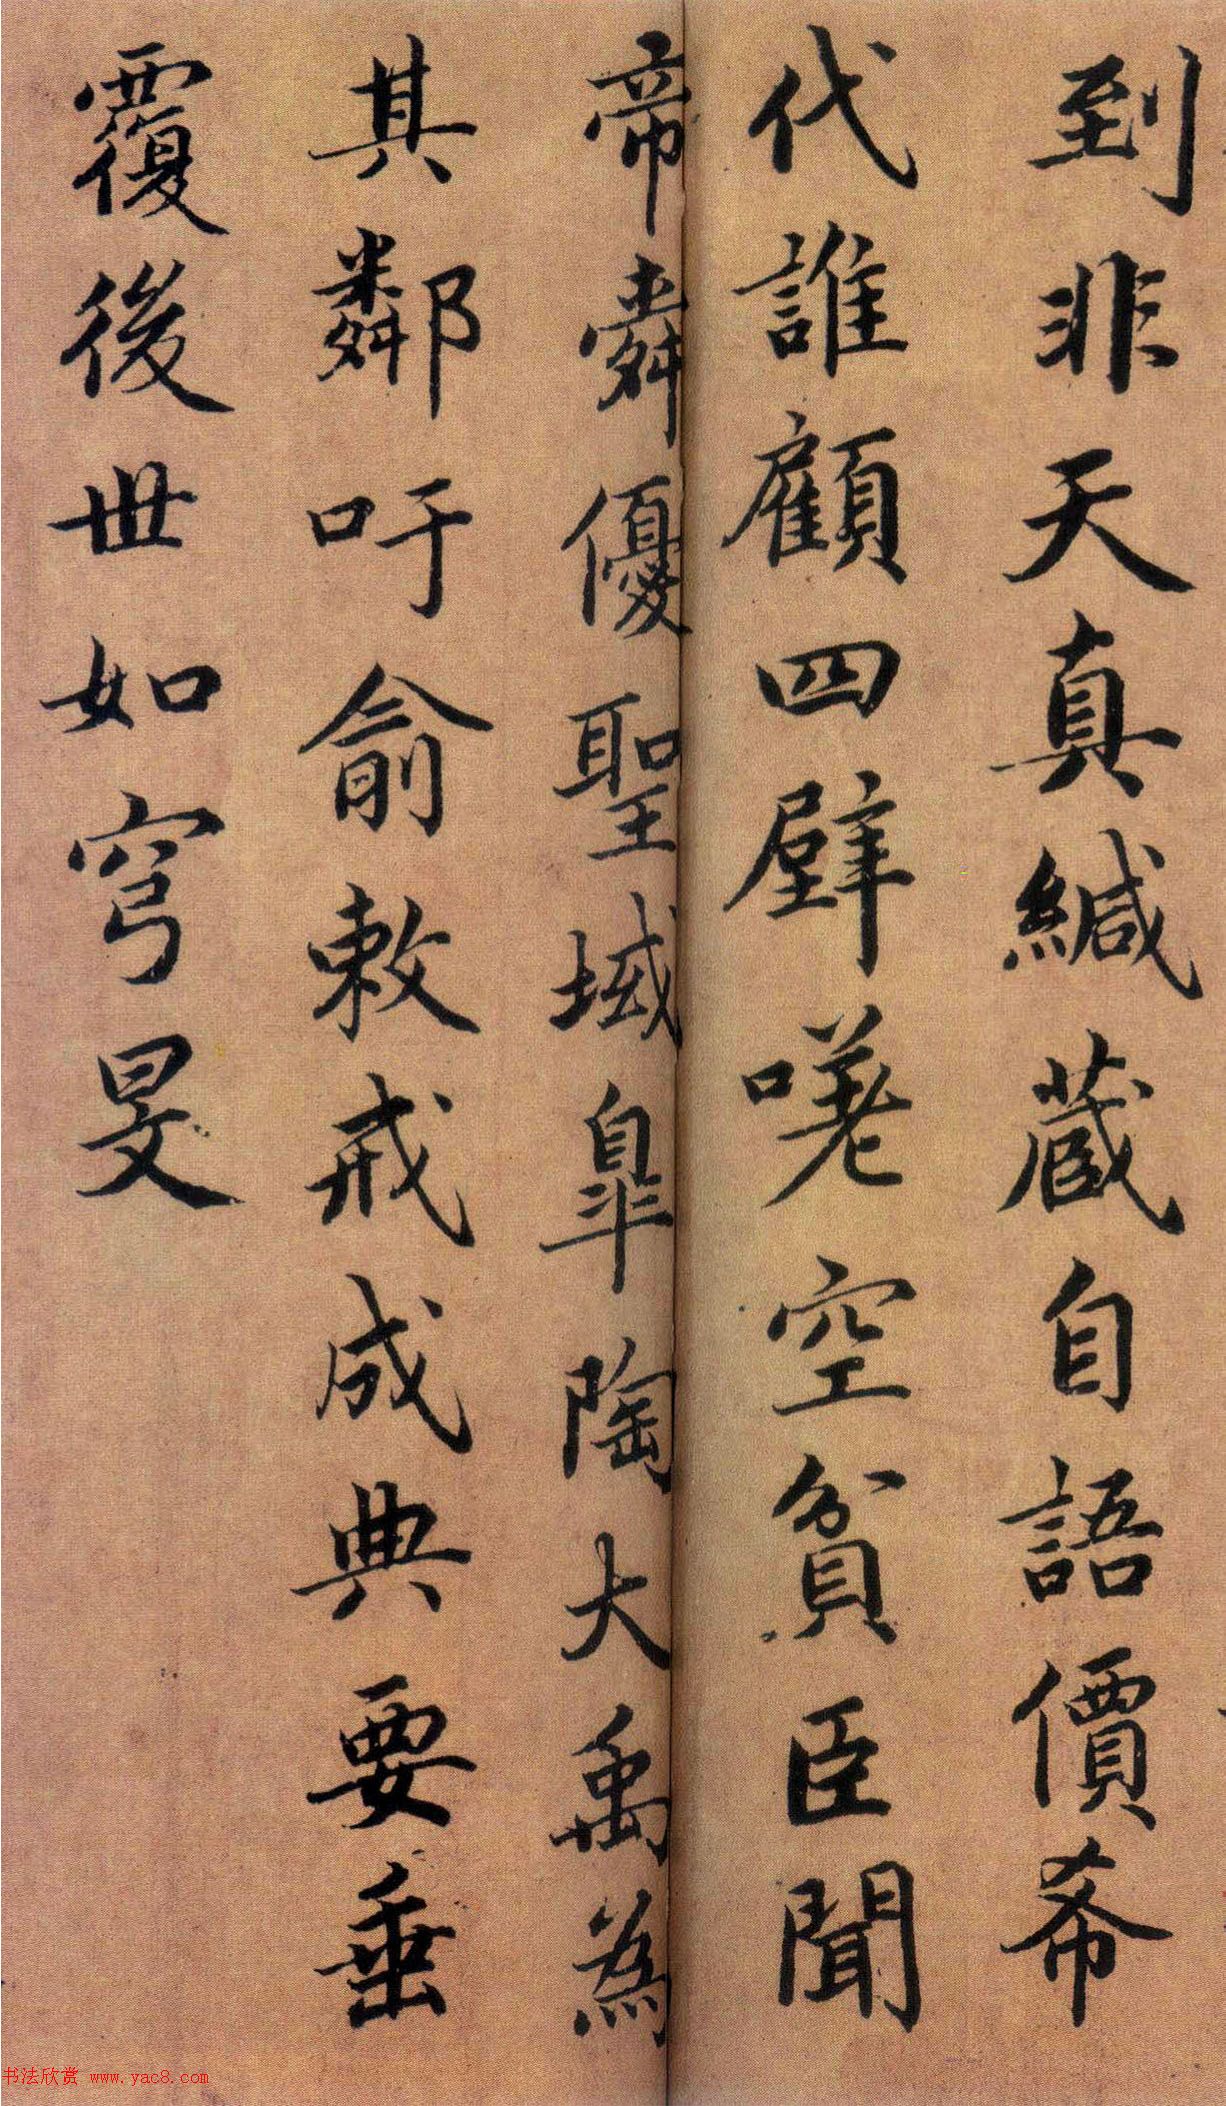 到非天真緘藏自語價希
代誰顧四壁嘆空貧臣聞
帝舜優聖域皐陶大禹為
其鄰吁俞敕戒成典要垂
覆後世如穹旻
书法欣赏 www.yac8.com